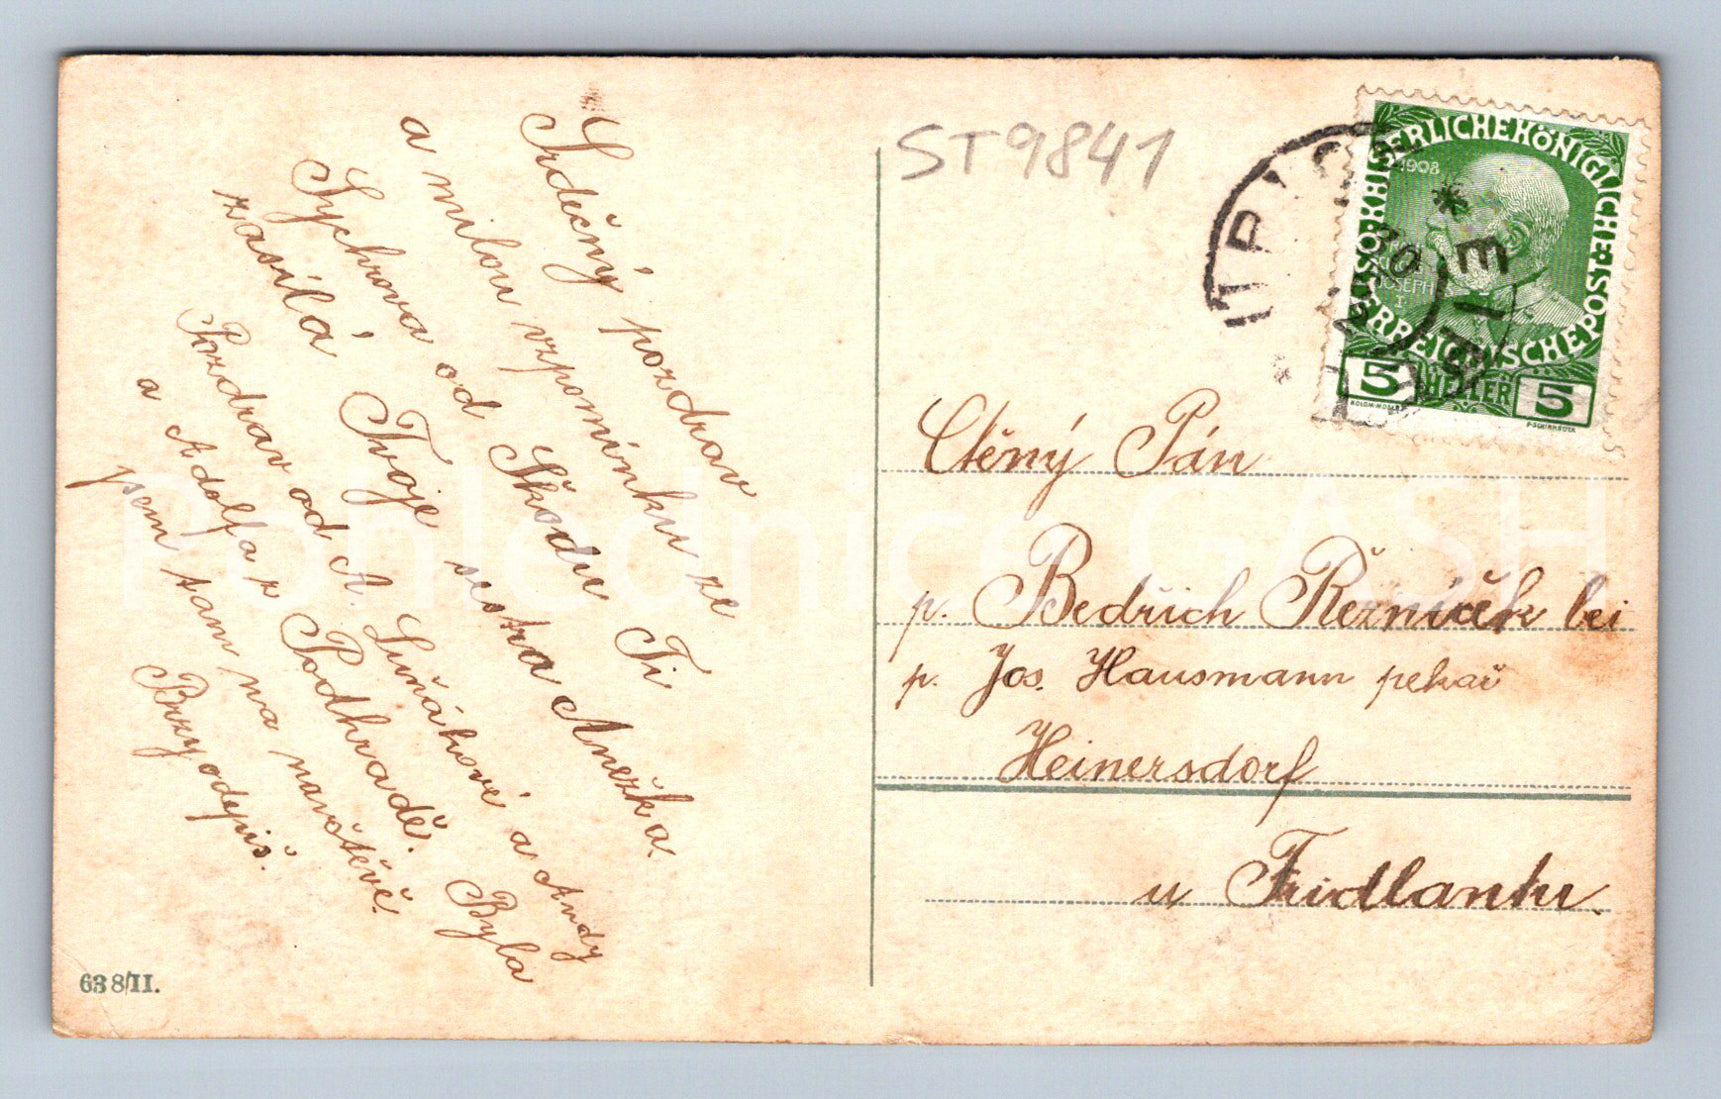 Srdečný pozdrav
a milou vzpomínku ze
Sychrova od Škodu Ti
zasílá Tvoje sestra Anežka.
Pozdrav od A. Luňákové a Andy
a Adolfa z Podhradě. Byla
jsem tam na navštěvě.
Brzy odepiš.
638/II.
ST9841
KAISERLICHE KÖNIGLICHE ÖSTERREICHISCHE POST
1908
JOSEPH
I
5 HELLER 5
Ctěný Pán
p. Bedřich Řezníček bei
p. Jos. Hausmann pekař
Heinersdorf
u Fridlantu.
Pohlednice GASH